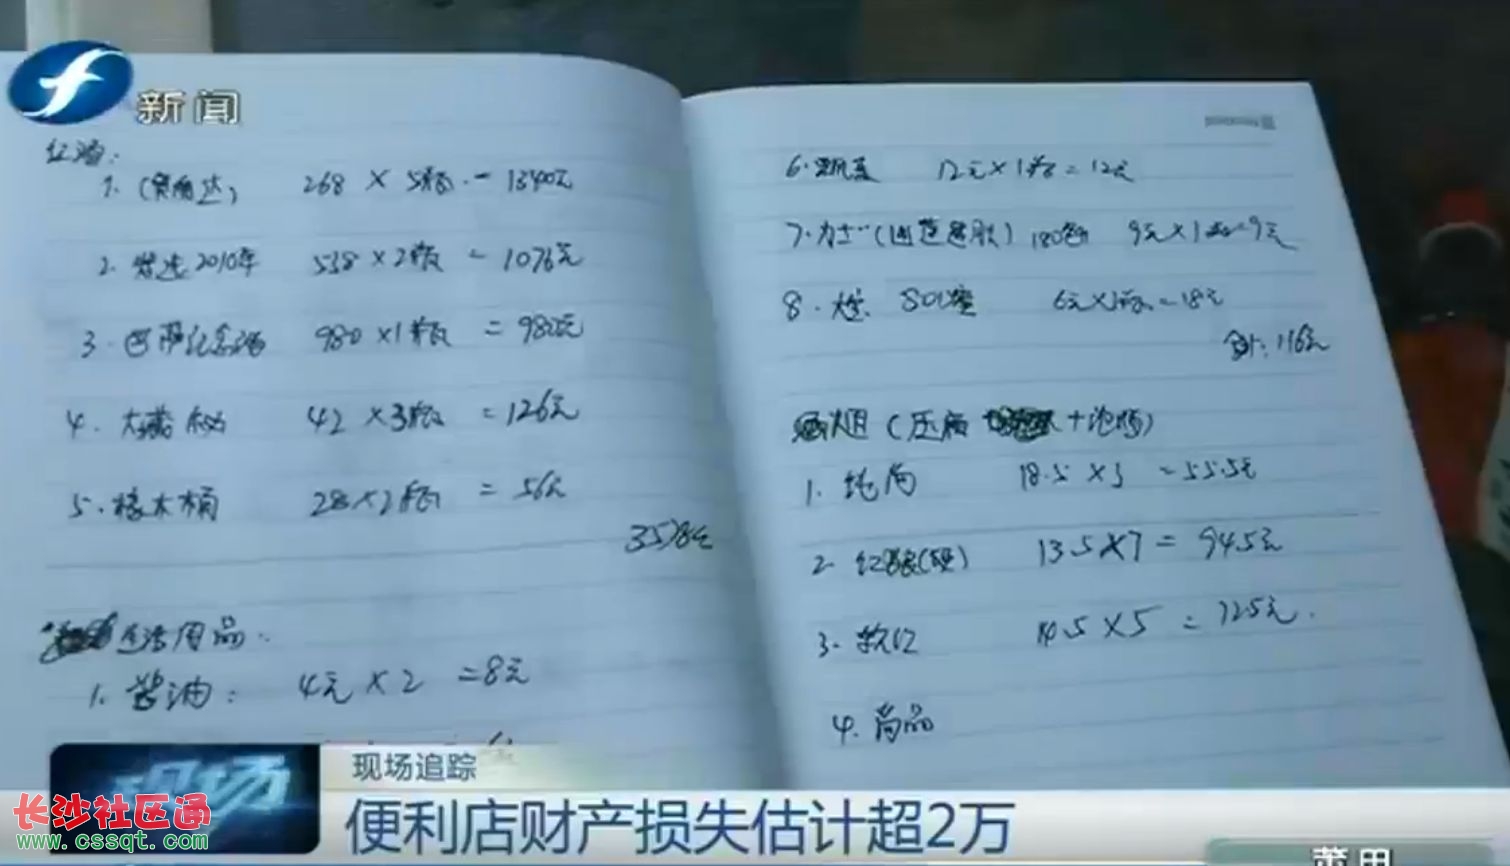 新闻
红酒:
1. ( 奔富达) 268 × 5瓶 = 1340元
2. 特选2010年 538 × 2瓶 = 1076元
3. 巴萨纪念酒 980 ×1瓶 = 980元
4. 42 ×3瓶 =126元
5. 橡木桶 28×2瓶 = 56元
3578元
生活用品:
1. 酱油: 4元×2 =8元
6. 飘柔 12元×1瓶=12元
7.力士 180 9元×1 =9元
8. 6元×3 =18元
合计:116元
香烟 (压扁 +泡水)
1. 纯尚 18.5 ×3 =55.5元
2 红 (硬) 13.5×7 = 94.5元
3. 软红 14.5×5 = 72.5元.
4. 尚品
现场
现场追踪
便利店财产损失估计超2万
莆田
长沙社区通
www.cssqt.com